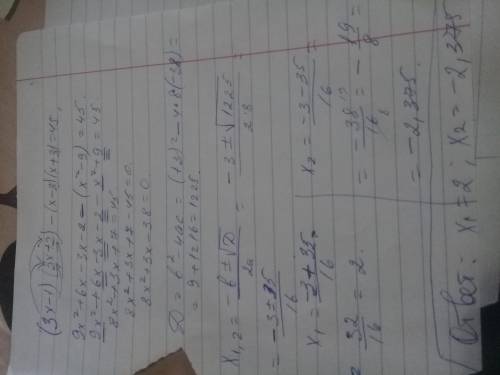 (3x-1)(3x+2) - (x-3)(x+3)=45,
9x²+6x-3x-2-(x²-9)=45.
9x²+6x-3x-2-x²-9=45
8x²+3x+7=45
8x²+3x+7-45=0.
8x²+3x-38=0.
D = b²-4ac = (+3)²-4·8·(-38)=
= 9+1216=1225.
x₁,₂ = -b±√D / 2a = -3±√1225 / 2·8 =
= -3±35 / 16
x₁ = -3+35 / 16 =
= 32 / 16 = 2.
x₂ = -3-35 / 16 =
= -38 / 16 = -19 / 8 =
= -2,375.
Ответ: x₁=2; x₂=-2,375